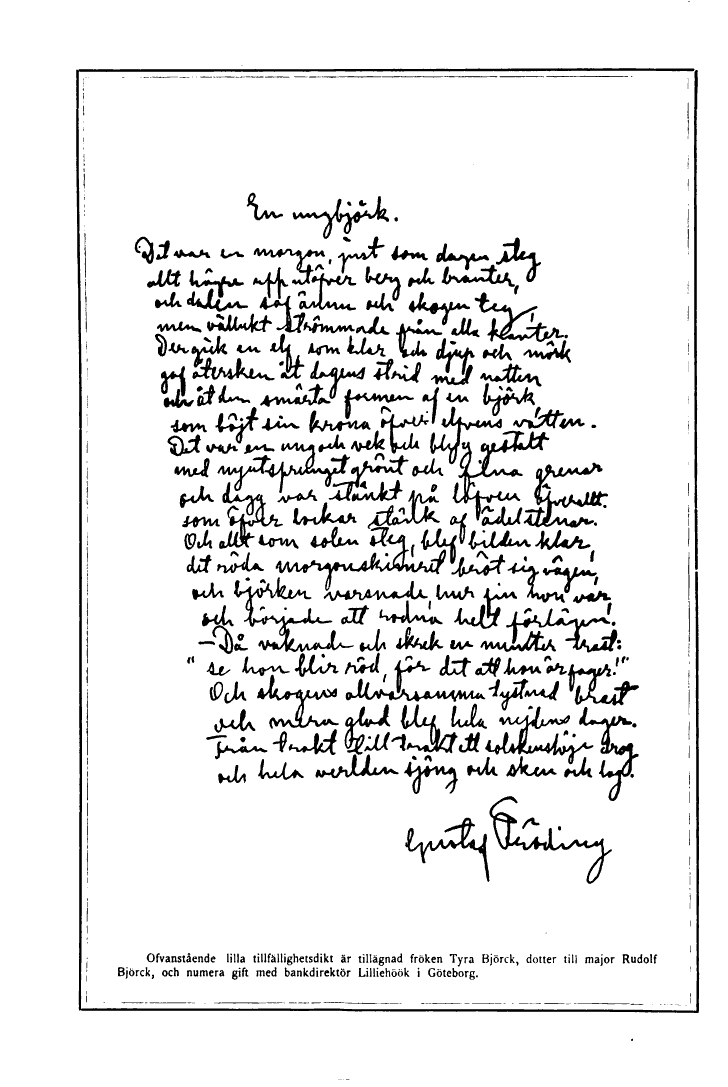 En ungbjörk.
Det var en morgon, just som dagen steg
allt högre upp utöfver berg och branter,
och dalen sof ännu och skogen teg,
men vällukt strömmade från alla kanter.
Der gick en elf, som klar och djup och mörk
gaf återsken åt dagens strid med natten
och åt den smärta formen af en björk
som böjt sin krona öfver elfvens vatten.
Det var en ung och vek och blyg gestalt
med nyutsprunget grönt och fina grenar
och dagg var stänkt på löfven öfverallt.
som öfver lockar stänk af ädelstenar.
Och allt som solen steg, blef bilden klar,
det röda morgonskimret bröt sig vägen,
och björken varsnade, hur fin hon var,
och började att rodna helt förlägen.
— Då vaknade och skrek en munter trast:
" se hon blir röd, för det att hon är fager!"
Och skogens allvarsamma tystnad brast
och mera glad blef hela nejdens dager.
Från trakt till trakt ett solskenslöje drog
och hela verlden sjöng och sken och log.
Gustaf Fröding
Ofvanstående lilla tillfällighetsdikt är tillägnad fröken Tyra Björck, dotter till major Rudolf
Björck, och numera gift med bankdirektör Lilliehöök i Göteborg.